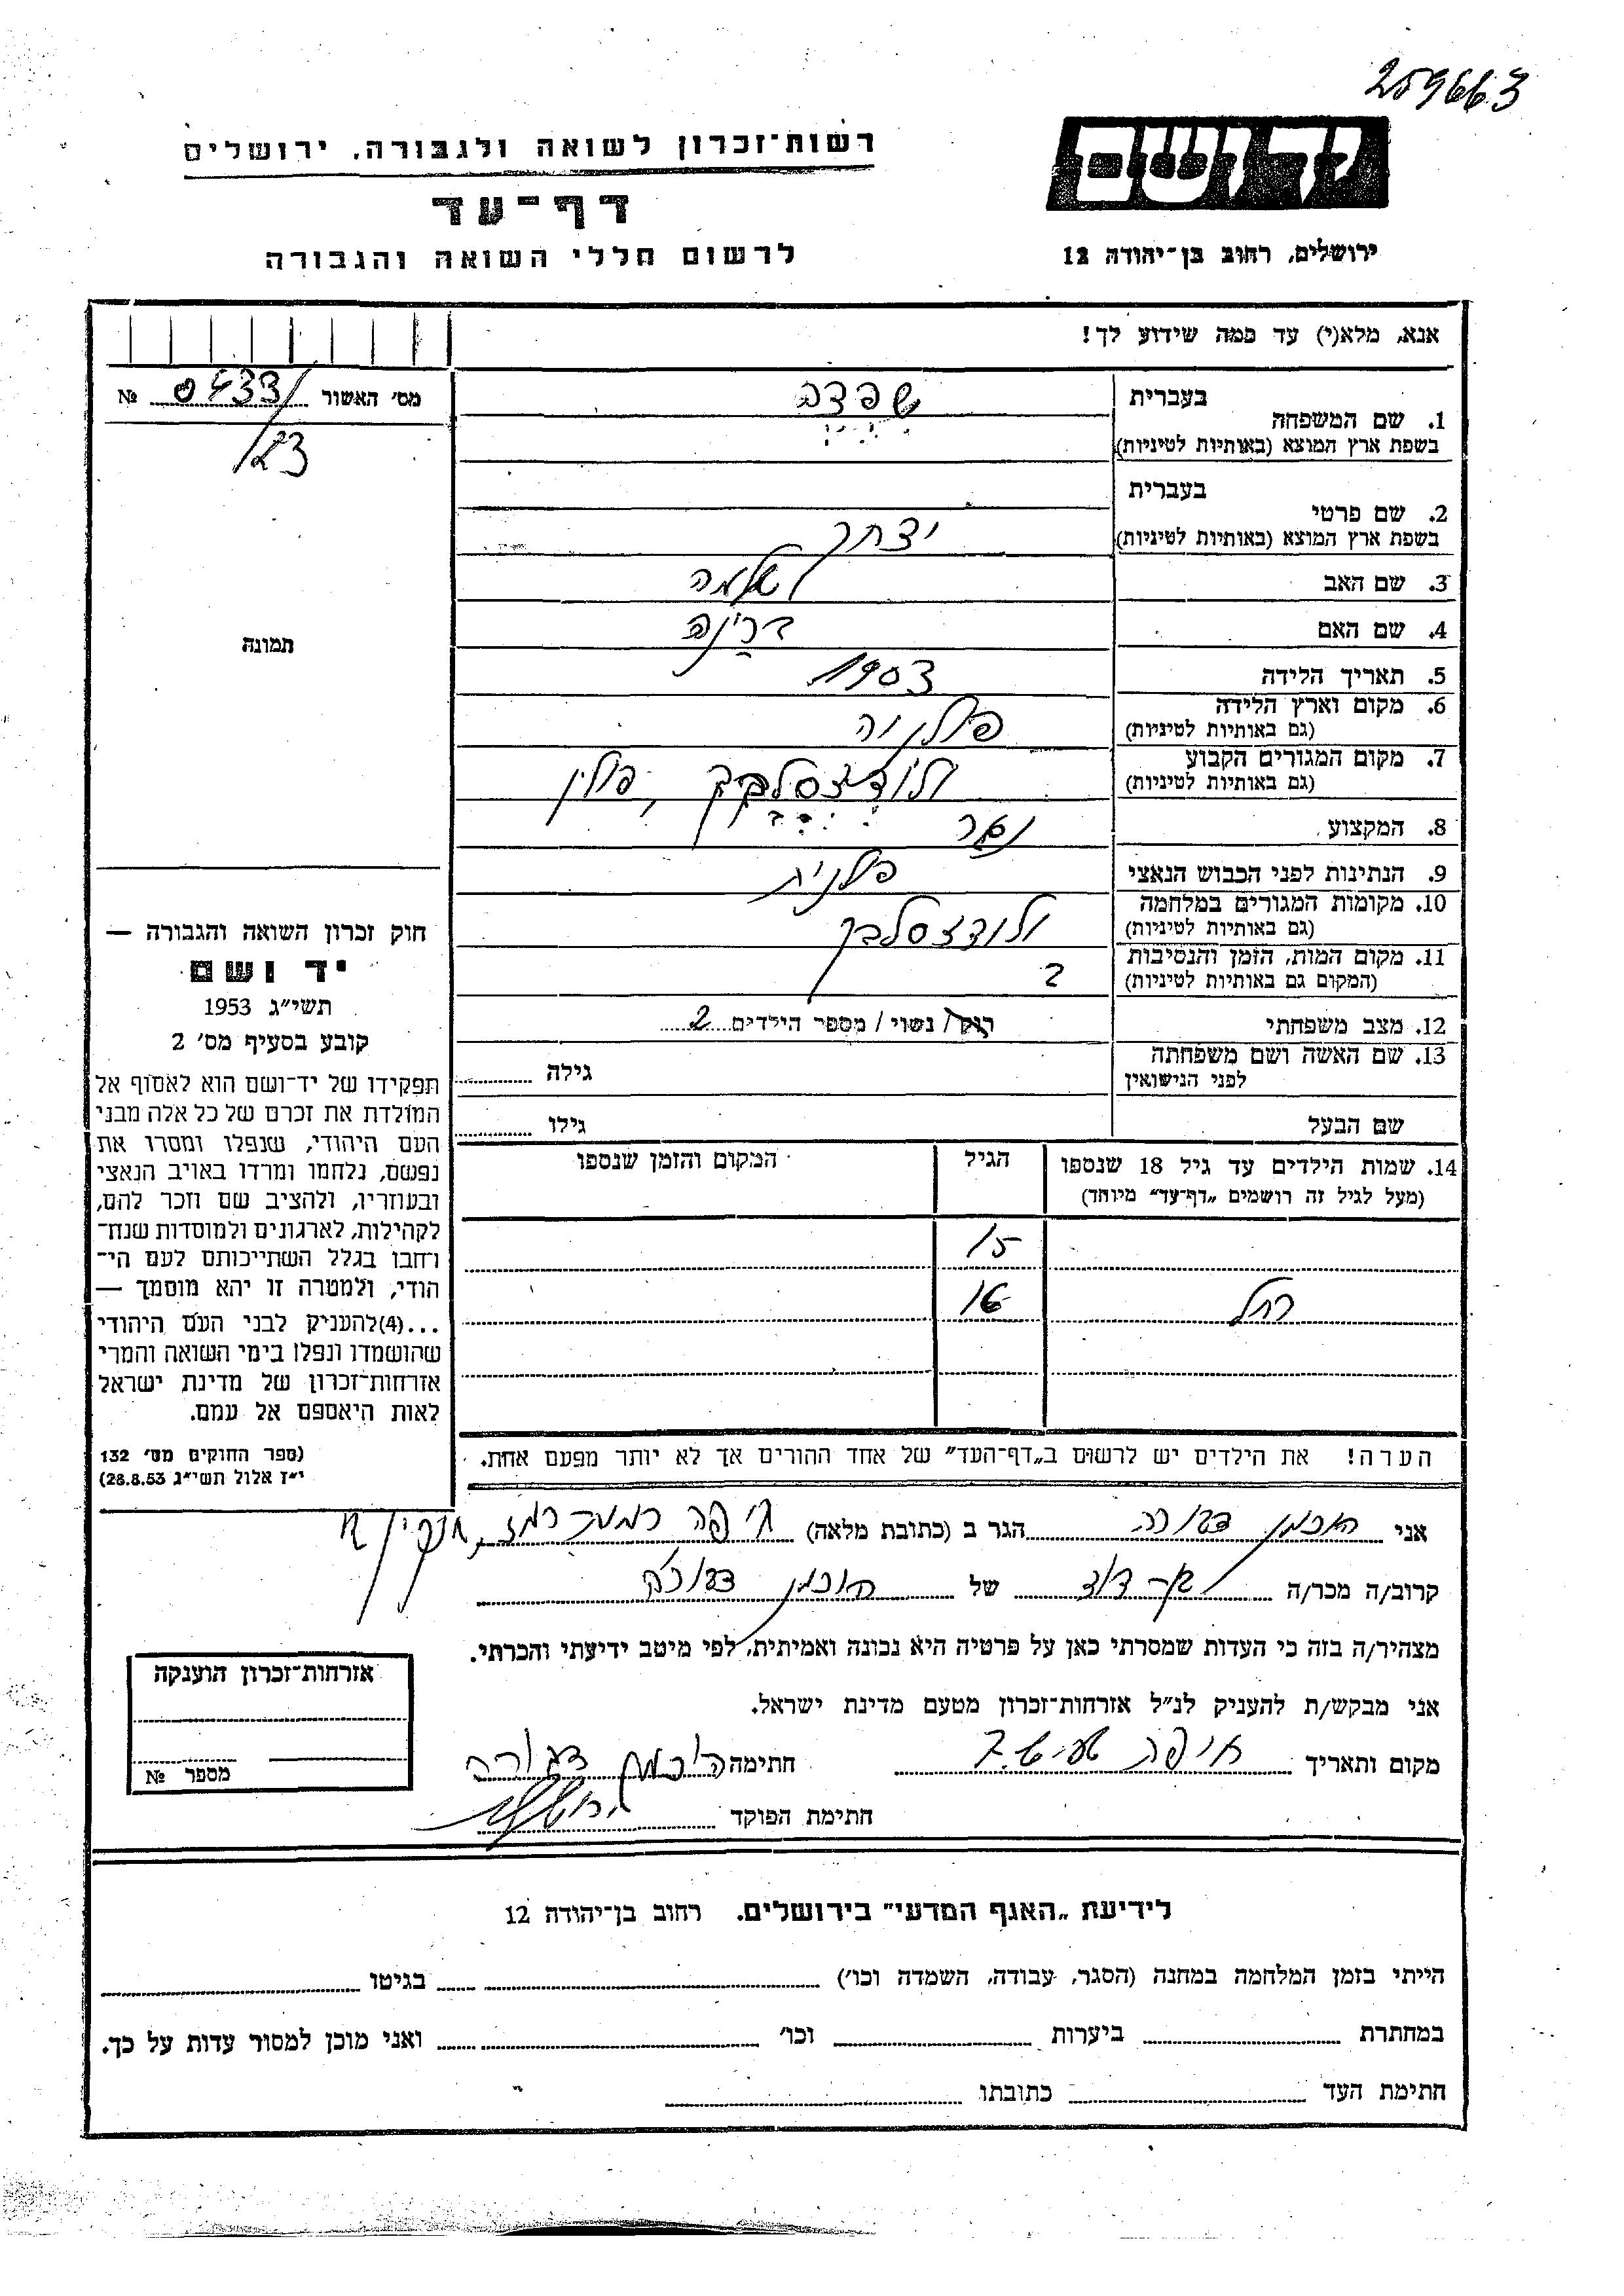 259663
יד ושם
רשות־זכרון לשואה ולגבורה, ירושלים
דף־עד
לרשום חללי השואה והגבורה
ירושלים, רחוב בן־יהודה 12
אנא, מלא(י) עד כמה שידוע לך!
מס׳ האשור № 0433/
123
תמונה
1. שם המשפחה בעברית
בשפת ארץ המוצא (באותיות לטיניות)
2. שם פרטי בעברית
בשפת ארץ המוצא (באותיות לטיניות) יצחק
3. שם האב שלמה
4. שם האם
5. תאריך הלידה 1903
6. מקום וארץ הלידה
(גם באותיות לטיניות) פולניה
7. מקום המגורים הקבוע
(גם באותיות לטיניות) ולודצסלבק, פולין
8. המקצוע נגר
9. הנתינות לפני הכבוש הנאצי פולנית
10. מקומות המגורים במלחמה
(גם באותיות לטיניות) ולודצסלבק
11. מקום המות, הזמן והנסיבות
(המקום גם באותיות לטיניות) ?
12. מצב משפחתי רוק/ נשוי / מספר הילדים 2
13. שם האשה ושם משפחתה
לפני הנישואין גילה
שם הבעל גילו
14. שמות הילדים עד גיל 18 שנספו הגיל המקום והזמן שנספו
(מעל לגיל זה רושמים „דף־עד” מיוחד)
15
רחל 16
הערה! את הילדים יש לרשום ב„דף־העד” של אחד ההורים אך לא יותר מפעם אחת.
חוק זכרון השואה והגבורה —
יד ושם
תשי״ג 1953
קובע בסעיף מס׳ 2
תפקידו של יד־ושם הוא לאסוף אל
המולדת את זכרם של כל אלה מבני
העם היהודי, שנפלו ומסרו את
נפשם, נלחמו ומרדו באויב הנאצי
ובעוזריו, ולהציב שם וזכר להם,
לקהילות, לארגונים ולמוסדות שנח־
רחבו בגלל השתייכותם לעם הי־
הודי, ולמטרה זו יהא מוסמך —
...(4)להעניק לבני העם היהודי
שהושמדו ונפלו בימי השואה והמרי
אזרחות־זכרון של מדינת ישראל
לאות היאספם אל עמם.
(ספר החוקים מס׳ 132
י״ז אלול תשי״ג 28.8.53)
אני הוכמן דבורה הגר ב (כתובת מלאה) חיפה
קרוב/ה מכר/ה של הוכמן דבורה
מצהיר/ה בזה כי העדות שמסרתי כאן על פרטיה היא נכונה ואמיתית, לפי מיטב ידיעתי והכרתי.
אני מבקש/ת להעניק לנ״ל אזרחות־זכרון מטעם מדינת ישראל.
מקום ותאריך חיפה חתימה הוכמן דבורה
חתימת הפוקד
אזרחות־זכרון הוענקה
מספר №
לידיעת „האגף המדעי” בירושלים. רחוב בן־יהודה 12
הייתי בזמן המלחמה במחנה (הסגר, עבודה, השמדה וכו׳) בגיטו
במחתרת ביערות וכו׳ ואני מוכן למסור עדות על כך.
חתימת העד כתובתו